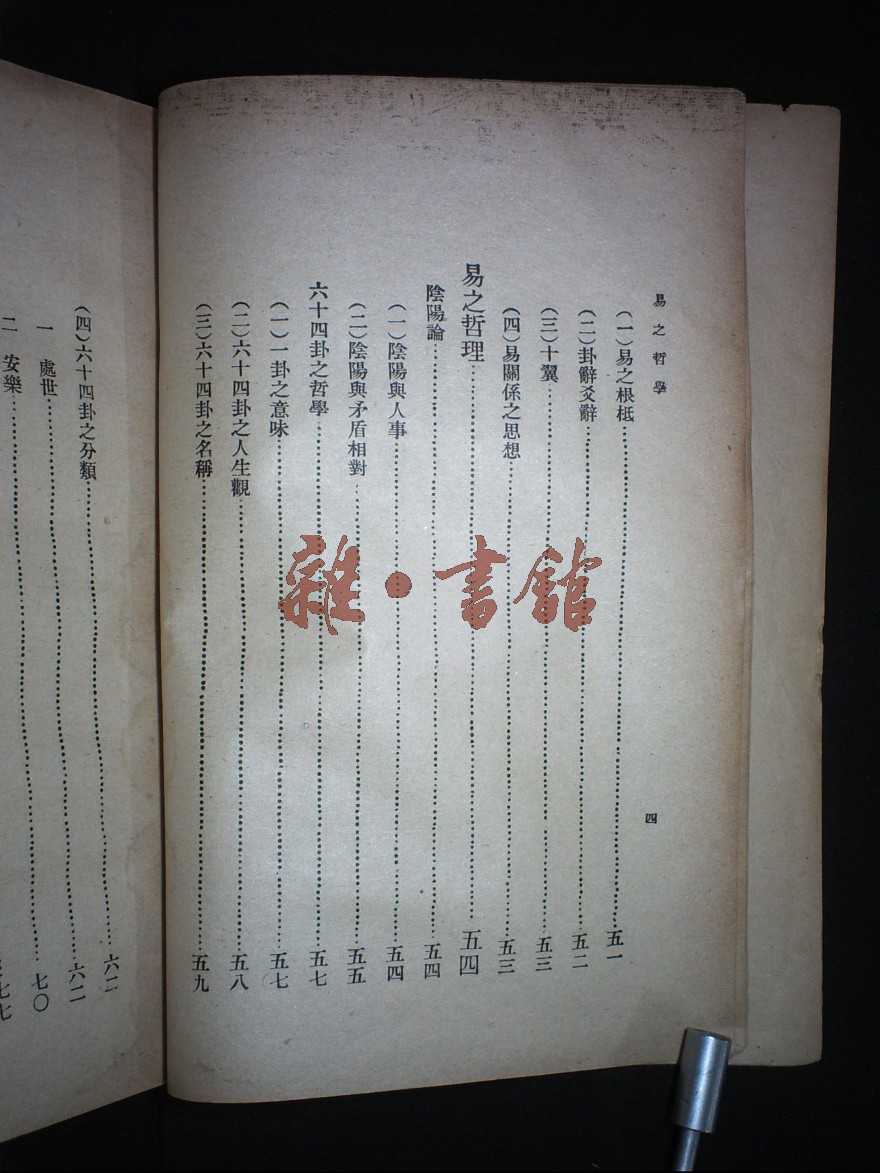 易之哲學
四
(一)易之根柢……五一
(二)卦辭爻辭……五二
(三)十翼……五三
(四)易關係之思想……五三
易之哲理……五四
陰陽論……五四
(一)陰陽與人事……五四
(二)陰陽與矛盾相對……五五
六十四卦之哲學……五七
(一)一卦之意味……五七
(二)六十四卦之人生觀……五八
(三)六十四卦之名稱……五九
(四)六十四卦之分類……六二
一 處世……六二
二 安樂……七〇
七七
雜·書館